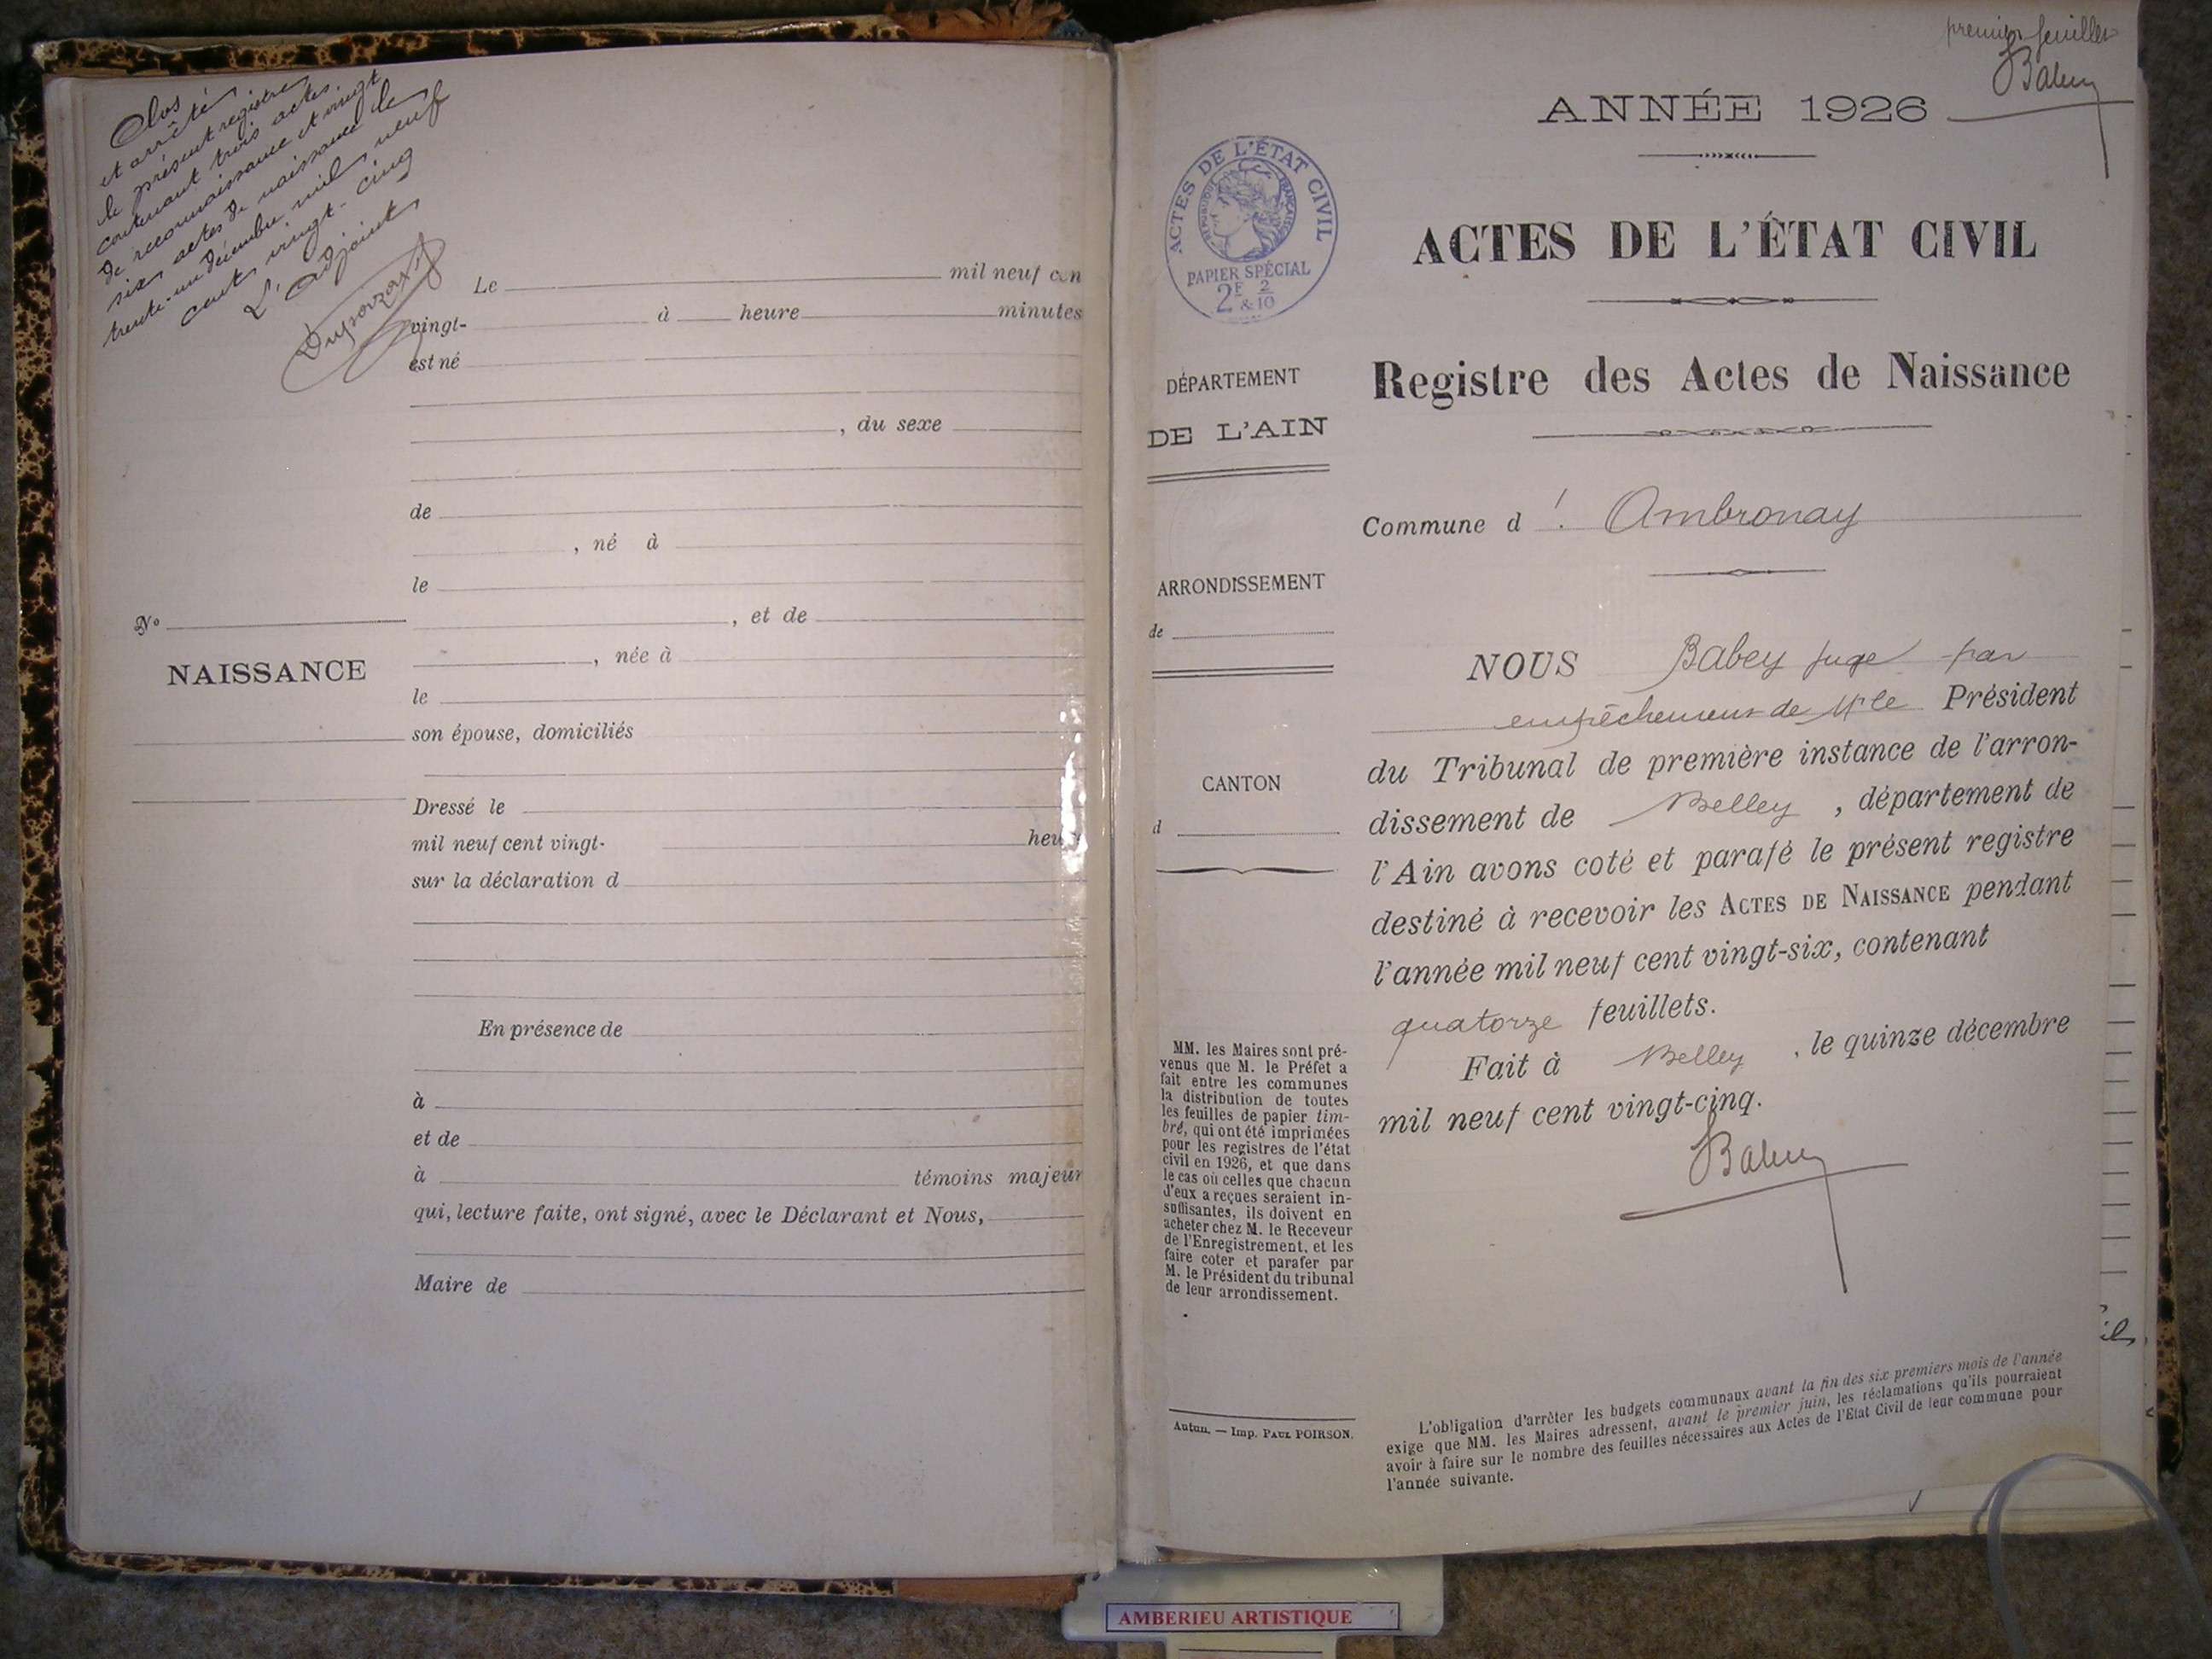 Clos
et arrêté
le présent registre
contenant trois actes
de reconnaissance et vingt
six actes de naissance le
trente-un décembre mil neuf
cent vingt-cinq
L'adjoint
Le mil neuf cen
vingt- à heure minutes
est né
, du sexe
de
, né à
le
No , et de
, née à
NAISSANCE
le
son épouse, domiciliés
Dressé le
mil neuf cent vingt- heu
sur la déclaration d
En présence de
à
et de
à témoins majeur
qui, lecture faite, ont signé, avec le Déclarant et Nous,
Maire de
premier feuillet
ANNÉE 1926
ACTES DE L'ÉTAT CIVIL
RÉPUBLIQUE FRANÇAISE
PAPIER SPÉCIAL
2F 2
& 10
ACTES DE L'ÉTAT CIVIL
Registre des Actes de Naissance
DÉPARTEMENT
DE L'AIN
Commune d'. Ambronay
ARRONDISSEMENT
de
CANTON
d
NOUS Babey juge par
empêchement de Mr le Président
du Tribunal de première instance de l'arron-
dissement de Belley , département de
l'Ain avons coté et parafé le présent registre
destiné à recevoir les ACTES DE NAISSANCE pendant
l'année mil neuf cent vingt-six, contenant
quatorze feuillets.
Fait à Belley , le quinze décembre
mil neuf cent vingt-cinq.
MM. les Maires sont pré-
venus que M. le Préfet a
fait entre les communes
la distribution de toutes
les feuilles de papier tim-
bré, qui ont été imprimées
pour les registres de l'état
civil en 1926, et que dans
le cas où celles que chacun
d'eux a reçues seraient in-
suffisantes, ils doivent en
acheter chez M. le Receveur
de l'Enregistrement, et les
faire coter et parafer par
M. le Président du tribunal
de leur arrondissement.
Autun. — Imp. PAUL POIRSON.
L'obligation d'arrêter les budgets communaux avant la fin des six premiers mois de l'année
exige que MM. les Maires adressent, avant le premier juin, les réclamations qu'ils pourraient
avoir à faire sur le nombre des feuilles nécessaires aux Actes de l'État Civil de leur commune pour
l'année suivante.
AMBERIEU ARTISTIQUE